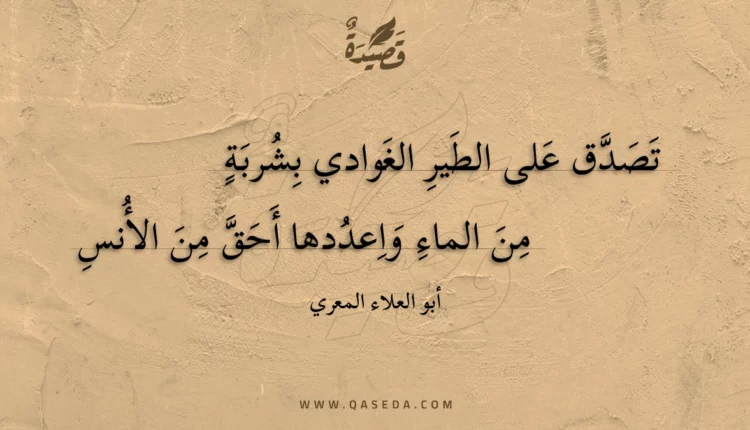 قَصِيدَةٌ
تَصَدَّق عَلى الطَيرِ الغَوادي بِشُربَةٍ
مِنَ الماءِ وَاِعدُدها أَحَقَّ مِنَ الأُنسِ
أبو العلاء المعري
WWW.QASEDA.COM